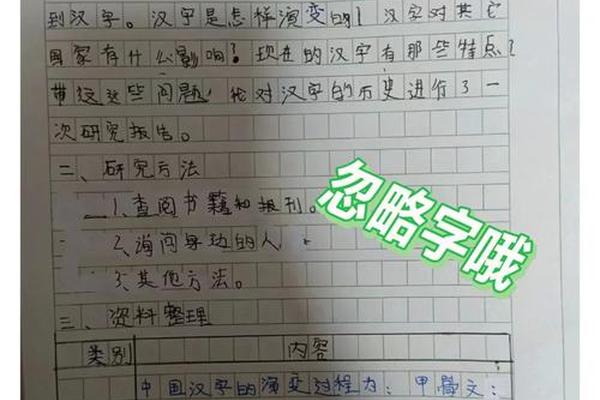 到汉字。汉字是怎样演变的！汉字对其它
国家有什么影响？现在的汉字有那些特点？
带这这些问题，我对汉字的历史进行了一
次研究报告。
二、研究方法
1、查阅书籍和报刊。
2、询问身边的人
3、其他方法。
三、资料整理
类别 内容
中国汉字的演变过程为：甲骨文：
忽略字哦